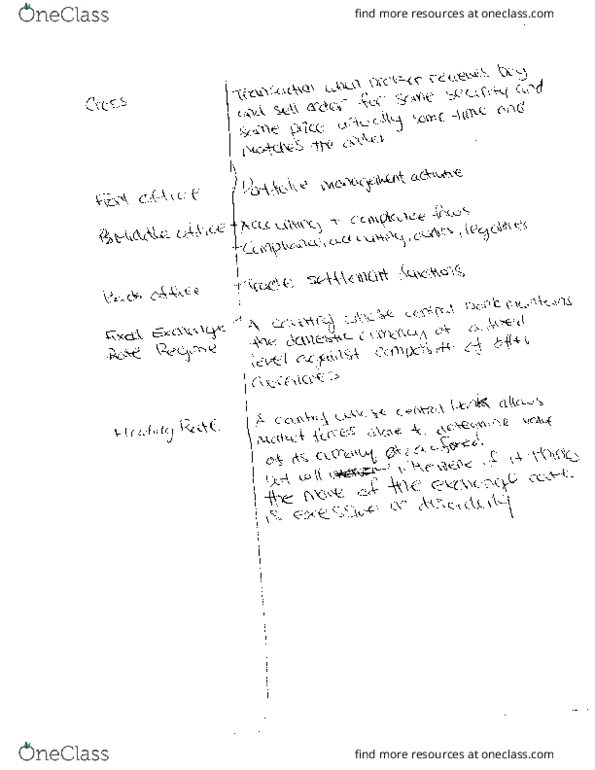 OneClass
find more resources at oneclass.com
Cross
Transaction when broker receives buy
and sell order for same security and
same price virtually same time and
matches the order
Front office
Portfolio management activities
Middle office
Accounting + compliance
Compliance, accounting, legalities
Back office
Trade settlement functions
Fixed Exchange
Rate Regime
A country whose central bank maintains
the domestic currency at a fixed
level against composite of other
currencies
Floating Rate
A country whose central bank allows
market forces alone to determine value
of its currency
but will intervene if it thinks
the move of the exchange rate
is excessive or disorderly
OneClass
find more resources at oneclass.com